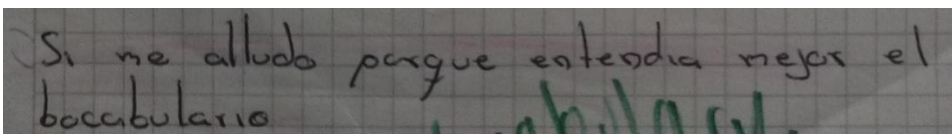 Si me alludo porque entendia mejor el
bocabulario